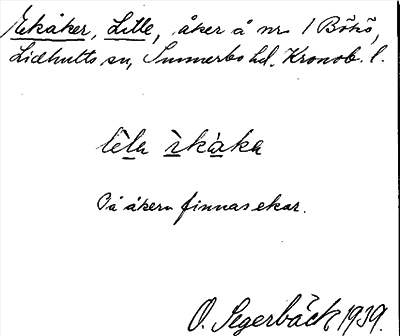 Ekåker, Lille, åker å nr 1 Bökö,
Lidhults sn, Sunnerbo hd. Kronob. l.
lìla ìkàka
På åkern finnas ekar.
O. Segerbäck 1939.